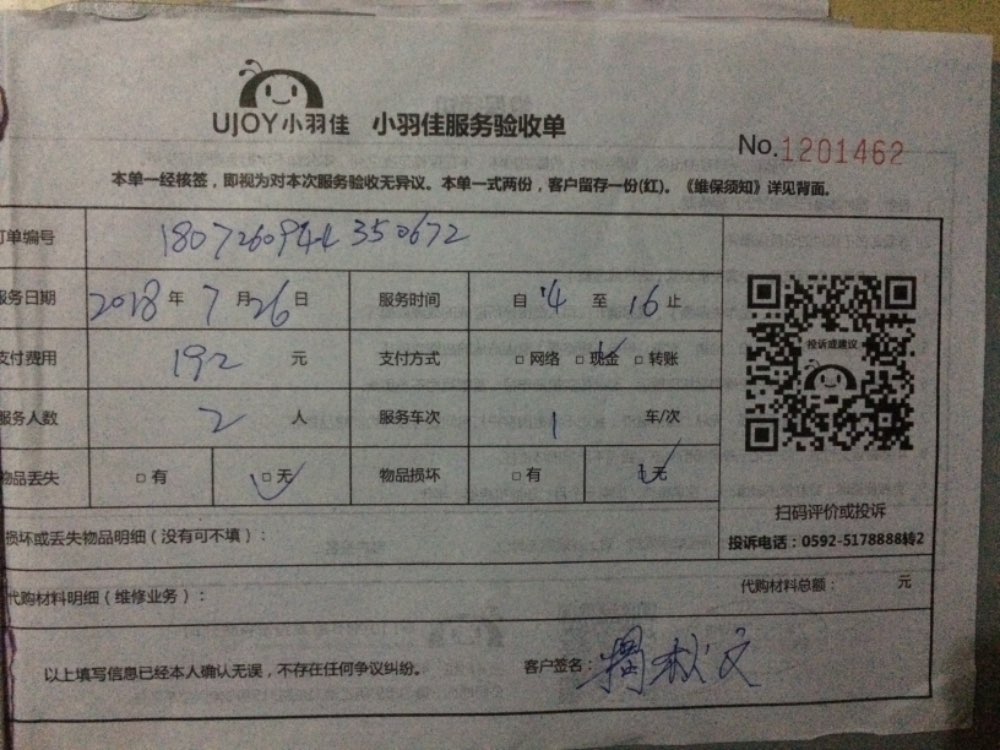 UJOY小羽佳 小羽佳服务验收单
No.1201462
本单一经核签，即视为对本次服务验收无异议。本单一式两份，客户留存一份(红)。《维保须知》详见背面。
订单编号 1807260944350672
服务日期 2018年 7月26日 服务时间 自14至16止
支付费用 192 元 支付方式 □网络 □现金 □转账
服务人数 2 人 服务车次 1 车/次
物品丢失 □有 □无 物品损坏 □有 □无
投诉或建议
扫码评价或投诉
投诉电话：0592-5178888转2
损坏或丢失物品明细（没有可不填）：
代购材料明细（维修业务）： 代购材料总额： 元
以上填写信息已经本人确认无误，不存在任何争议纠纷。 客户签名：